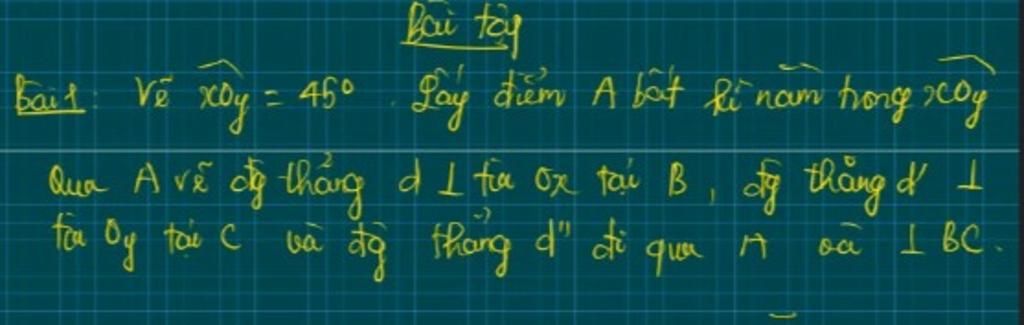 Bài tập
Bài 1: Vẽ xOy = 45° . Lấy điểm A bất kì nằm trong xOy
Qua A vẽ đg thẳng d ⊥ tia Ox tại B, đg thẳng d' ⊥
tia Oy tại C và đg thẳng d" đi qua A và ⊥ BC.